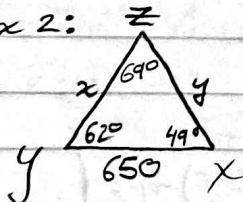 x 2:
Z
69°
x
y
62°
49°
y
650
X